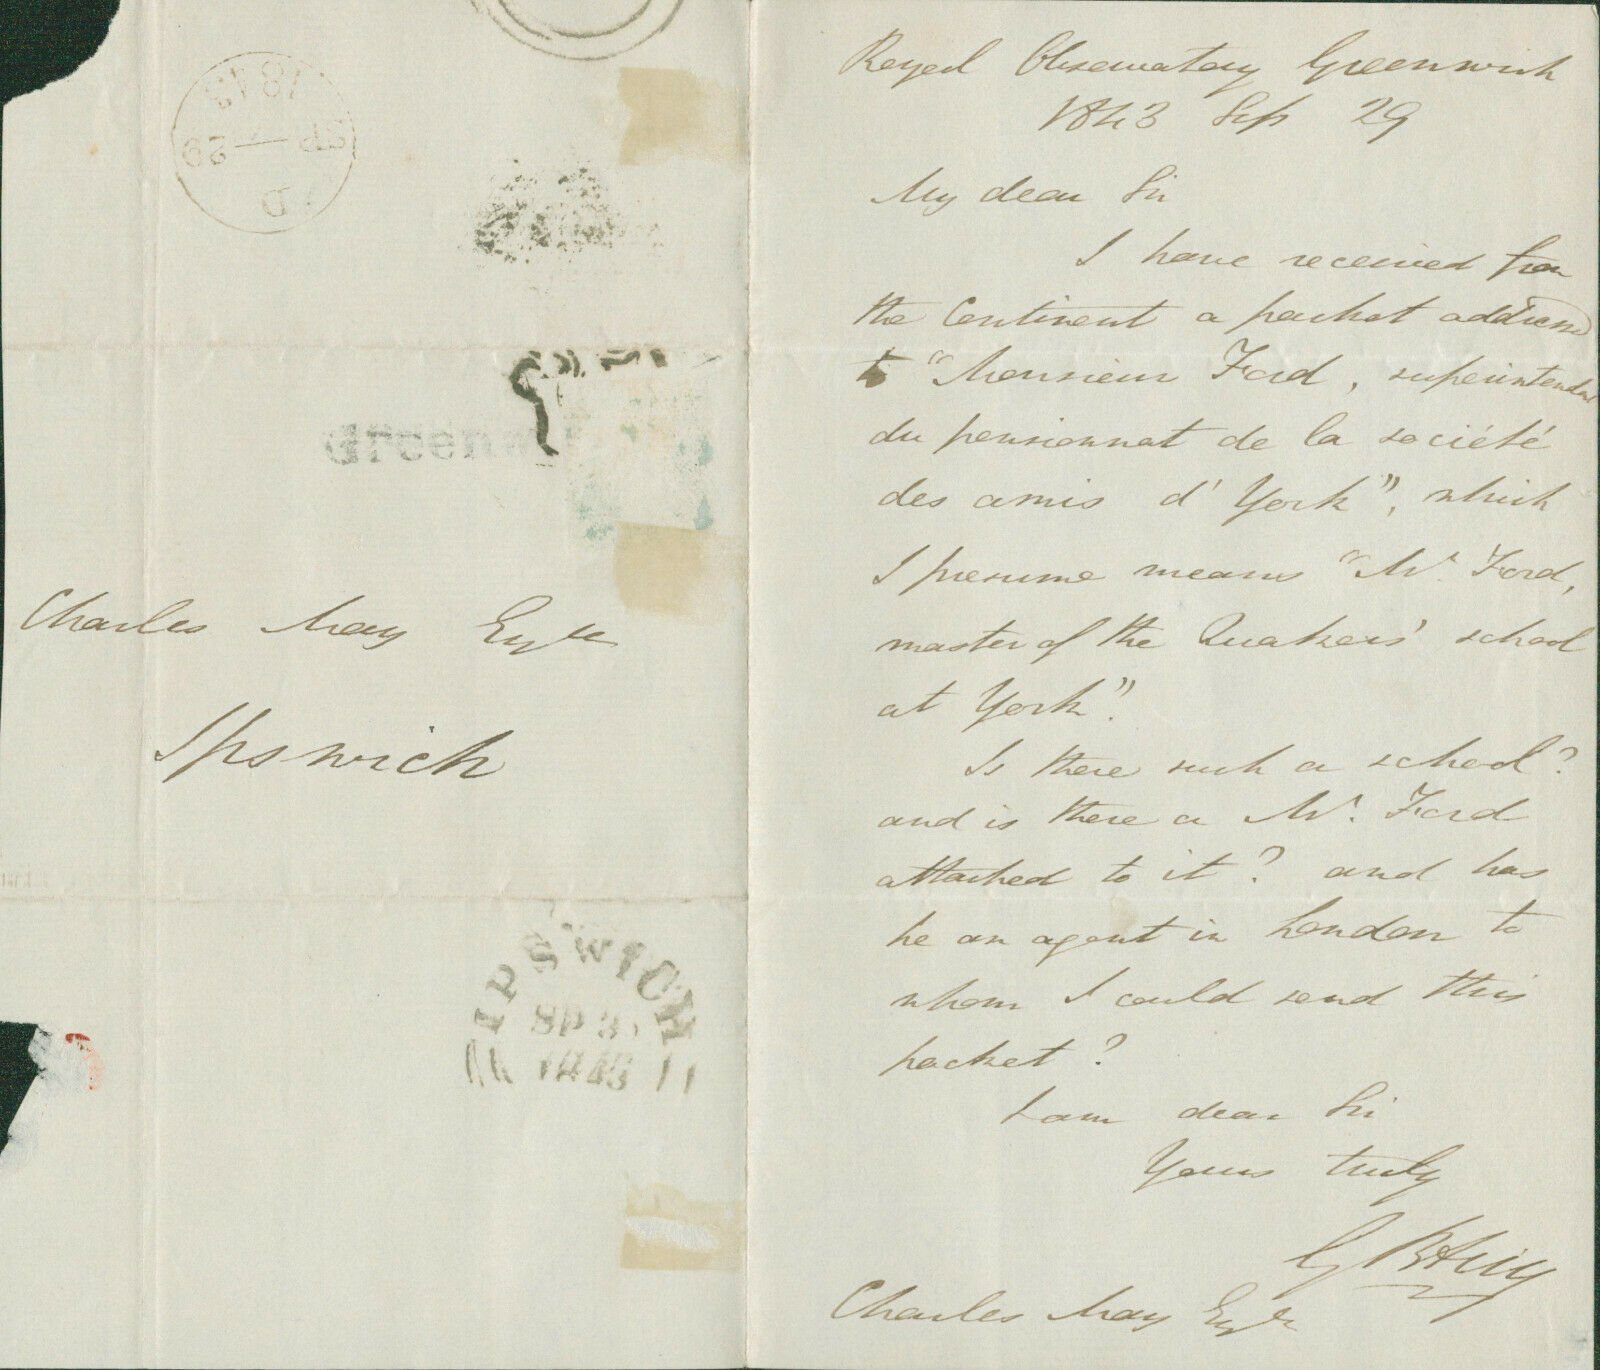 1843
SP 29
D
Green
Charles May Esqre
Ipswich
IPSWICH
SP 3
1843
Royal Observatory Greenwich
1843 Sep 29
My dear Sir
I have received from
the Continent a packet addressed
to "Monsieur Ford, superintendant
du pensionnat de la société
des amis d'York", which
I presume means "Mr. Ford,
master of the Quakers' school
at York".
Is there such a school?
and is there a Mr. Ford
attached to it? and has
he an agent in London to
whom I could send this
packet?
I am dear Sir
Yours truly
G B Airy
Charles May Esqre